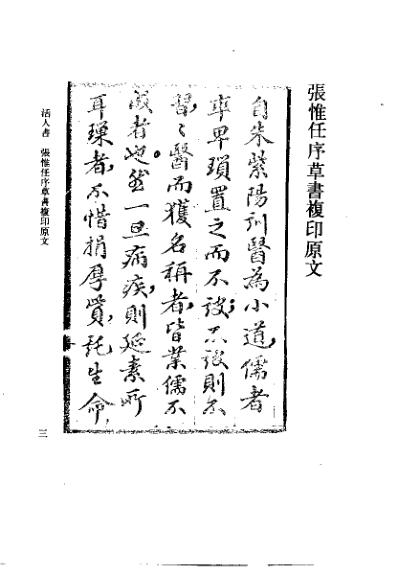 張惟任序草書複印原文
自朱紫陽列醫為小道，儒者
率卑瑣置之而不談；不談則不
習，醫而獲名稱者，皆業儒不
成者也。然一旦病疾，則延素所
耳璅者，不惜捐厚貲，託生命
活人書　張惟任序草書複印原文
三